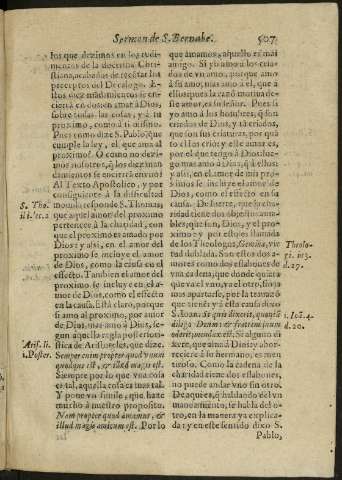 Sermon de S. Bernabe.
507
los que dezimos en los rudi-
mentos de la doctrina Chri-
stiana, acabadas de recitar los
preceptos del Decalogo. Es-
tos diez mãdamientos se en-
cierrã en dos: en amar à Dios,
sobre todas las cosas, y à tu
proximo, como à ti mismo.
Pues como dize S. Pablo, que
cumple la ley, el que ama al
proximo? O como no dezi-
mos nosotros, q̃ los diez man
damientos se encierrã en vno?
Al Texto Apostolico, y por
consiguiente à la dificultad
responde S. Thomas,
que aqui el amor del proximo
pertenece à la charidad, con
que el proximo es amado por
Dios: y assi, en el amor del
proximo se incluye el amor
de Dios, como la causa en el
efecto. Tambien el amor del
proximo se incluye en el a-
mor de Dios, como el efecto
en la causa. Està claro, porque
si amo al proximo, por amor
de Dios, mas amo à Dios, se-
gun aquella regla posterioris-
tica de Aristoteles, que dize:
Semper enim propter quod vnum
quodque est, & illud magis est.
Siempre por lo que vna cosa
es tal, aquella cosa es mas tal.
Y pone vn simile, que haze
mucho à nuestro proposito.
Nam propter quod amamus, &
illud magis amicum est. Por lo
que amamos, aquello es mas
amigo. Si yo amo à los cria-
dos de vn amo, porque amo
à su amo, mas amo à el, que à
ellos; pues la razõ motiua de
esse amor es su señor. Pues si
yo amo à los hombres, q̃ son
criados de Dios, y tã criados,
que son sus criaturas, por quã
to el los criò; y este amar es,
por el que tengo à Dios: lue-
go mas amo à Dios, que à e-
llos: y assi, en el amor de mis pro
ximos se incluye el amor de
Dios, como el efecto en su
causa. De suerte, que la cha-
ridad tiene dos objetos ama-
bles, que son, Dios, y el pro-
ximo: y por esto es llamada
de los Theologos, Gemina, vir
tud doblada. Son estos dos a-
mores como dos eslabones de
vna cadena, que donde quiera
que va el vno, va el otro, sin ja
mas apartarse, por la trauazõ
que tienen; y à esta causa dixo
S. Ioan. Si quis dixerit, quoniã
diligo Deum: & fratrem suum
oderit, mendax est. Si alguno di
xere, que ama à Dios, y abor-
reciere à lo hermano, es men
tiroso. Como la cadena de la
charidad tiene dos eslabones,
no puede andar vno sin otro.
De aqui es, q̃ hablando del vn
mandamiento, se habla del o-
tro, en la manera ya explica-
da: y en este sentido dixo S.
Pablo,
S. Tho.
Arist. li.
1. Poster.
Theolo-
gi. in 3.
d. 27.
1. Ioã. 4.
d. 20.